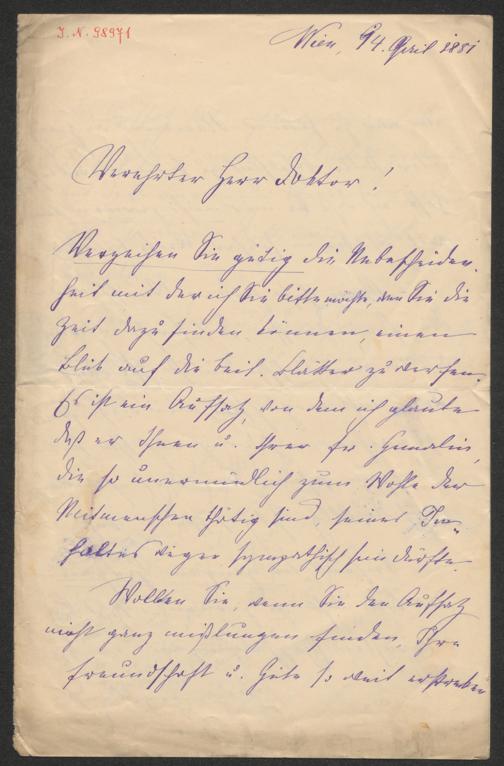 J. N. 98971
Wien, 14. April 1881
Verehrter Herr Doktor!
Verzeihen Sie gütig die Unbescheiden-
heit mit der ich Sie bitten möchte, wenn Sie die
Zeit dazu finden können, einen
Blick auf die beil. Blätter zu werfen.
Es ist ein Aufsatz, von dem ich glaube
daß er Ihnen u. Ihrer Fr. Gemalin,
die so unermüdlich zum Wohle der
Mitmenschen thätig sind, seines In-
haltes wegen sympathisch sein dürfte.
Wollen Sie, wenn Sie den Aufsatz
nicht ganz mißlungen finden, Ihre
Freundschaft u. Güte so weit erstrecken